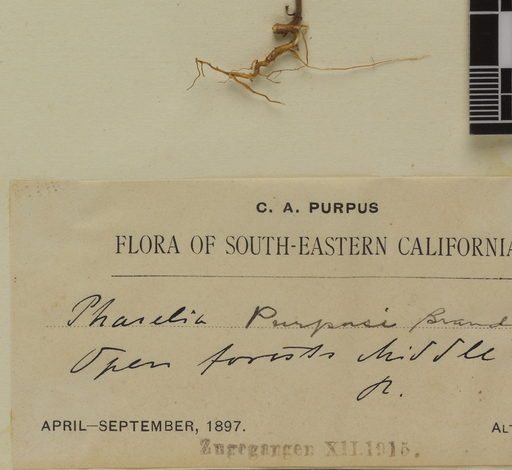 C. A. PURPUS
FLORA OF SOUTH-EASTERN CALIFORNIA
Phacelia Purpusi Brand
Open forests Middle
APRIL—SEPTEMBER, 1897.
Zugegangen XII.1915.